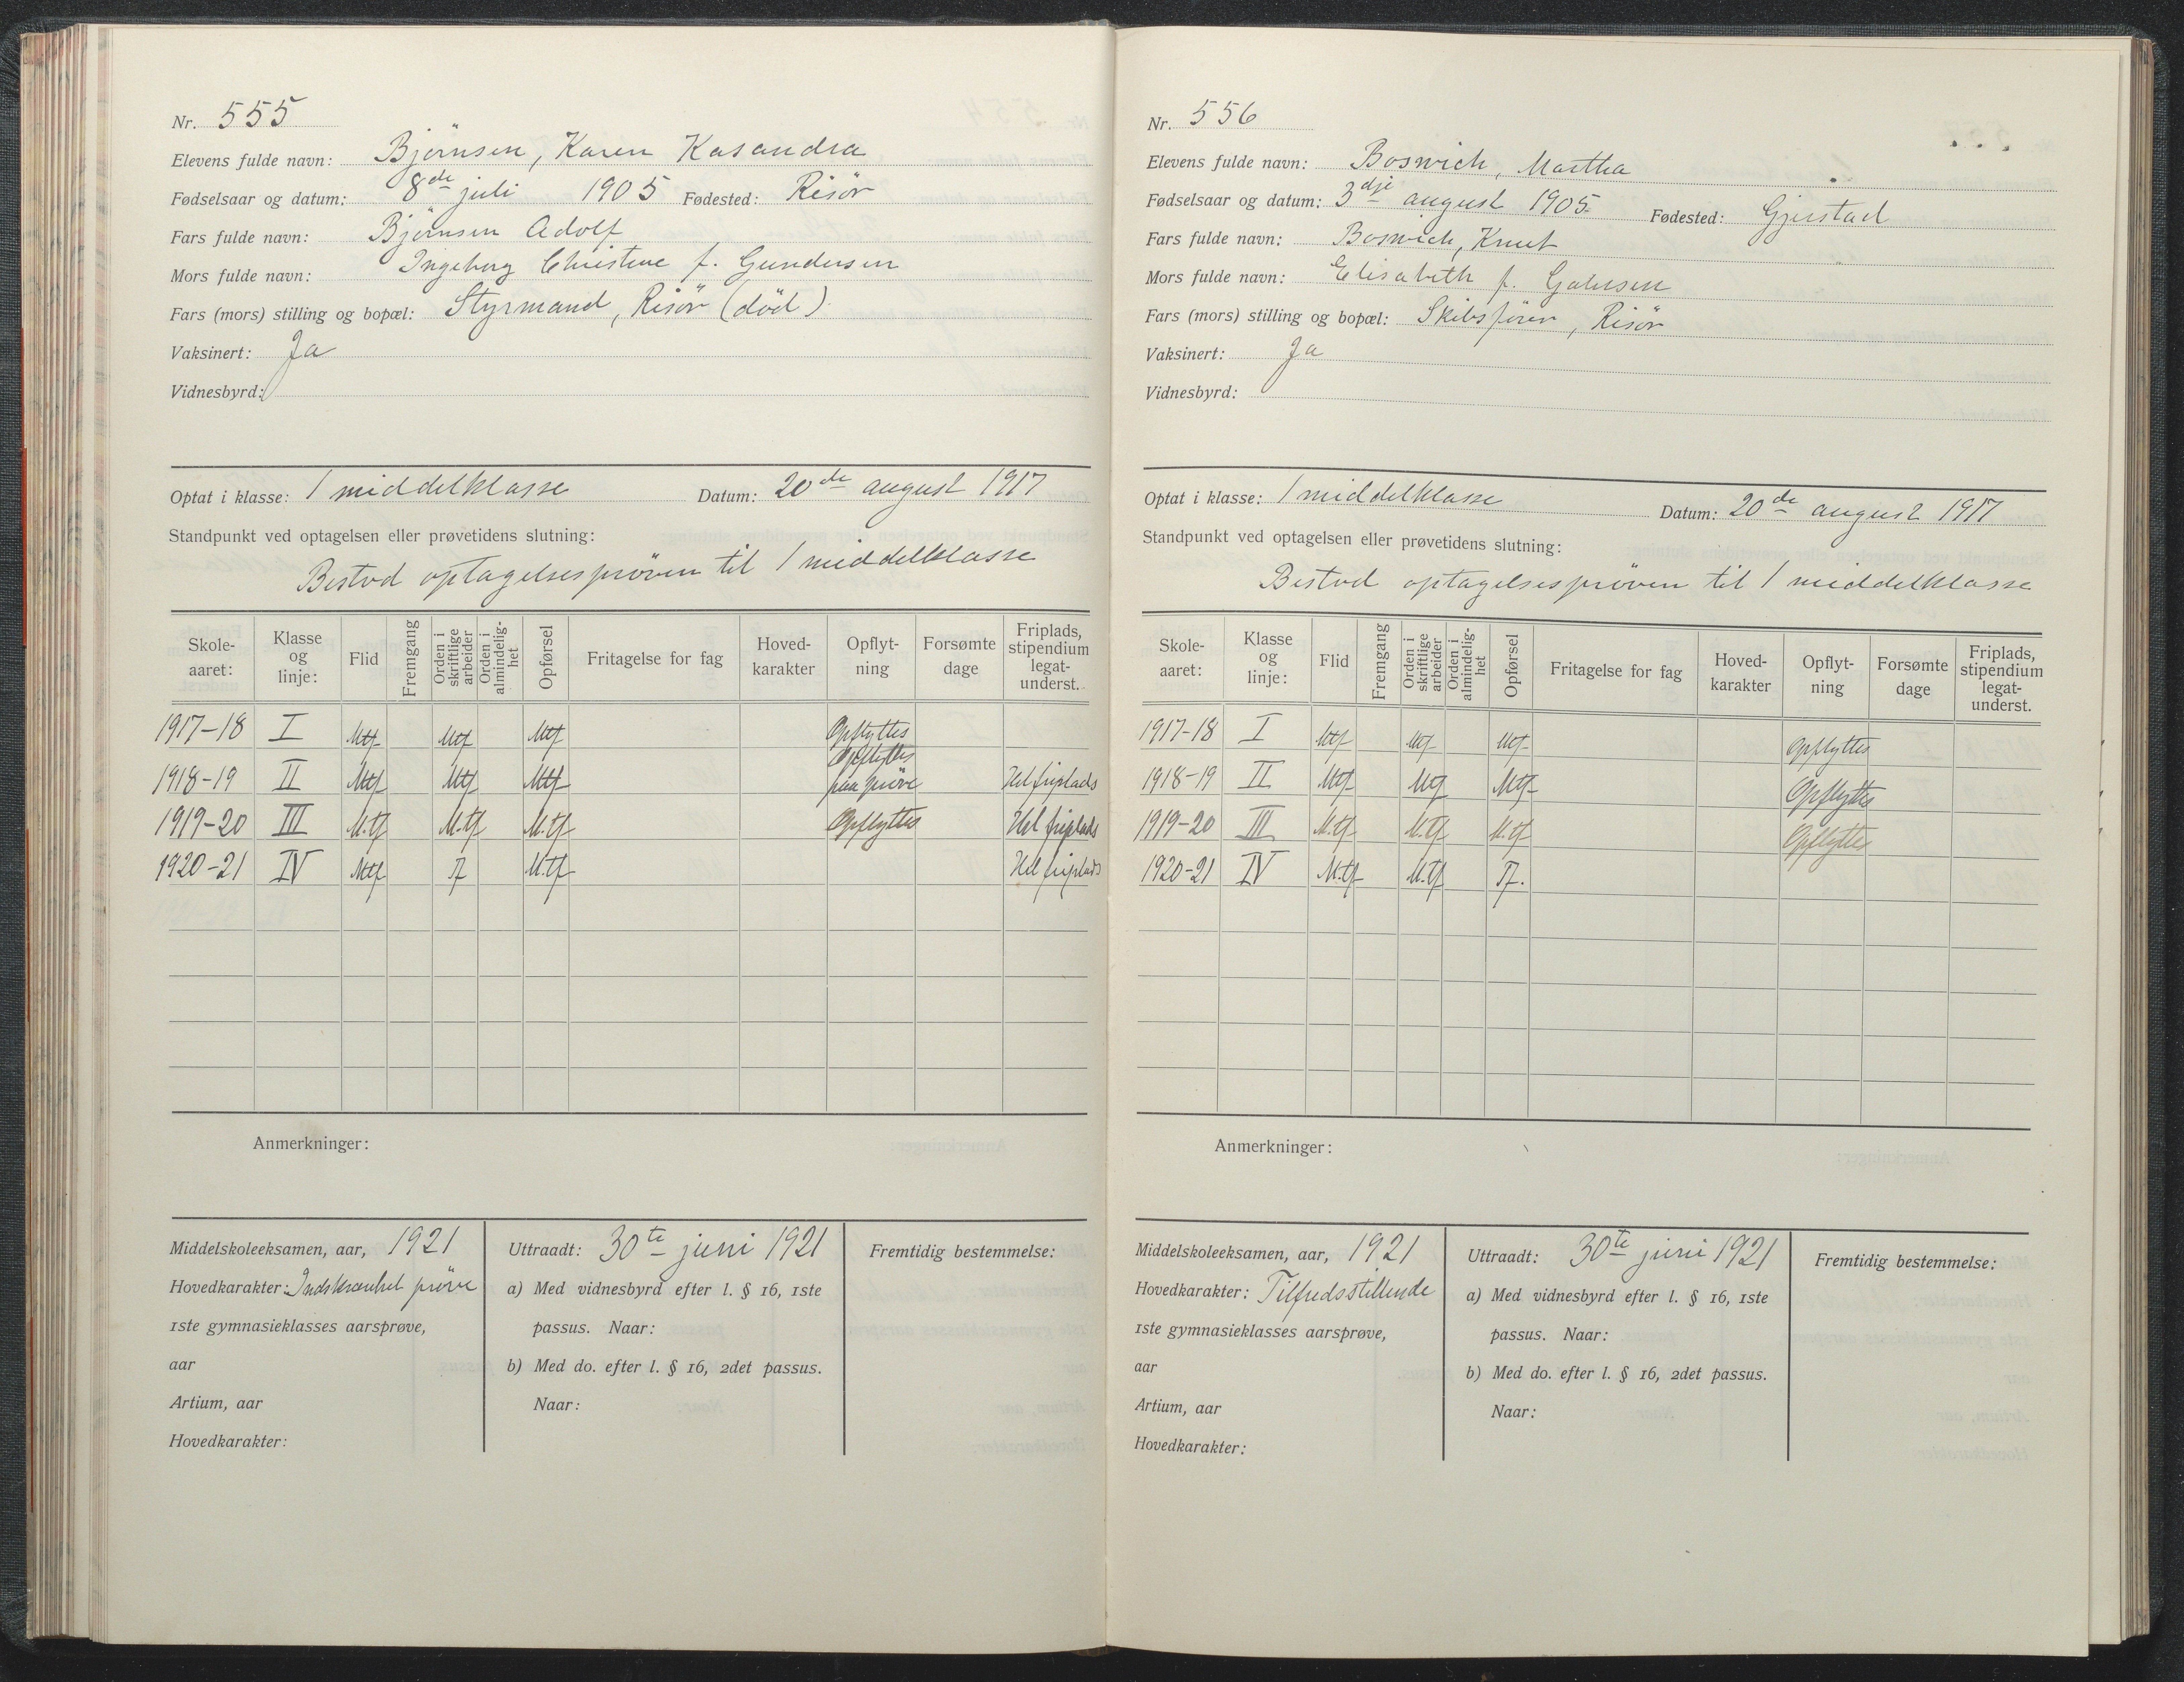 Nr. 555
Elevens fulde navn: Bjørnsen, Karen Kasandra
Fødselsaar og datum: 8de juli 1905 Fødested: Risör
Fars fulde navn: Bjørnsen Adolf
Mors fulde navn: Ingeborg Christine f. Gundersen
Fars (mors) stilling og bopæl: Styrmand, Risör (död)
Vaksinert: Ja
Vidnesbyrd:
Optat i klasse: 1 middelklasse Datum: 20de august 1917
Standpunkt ved optagelsen eller prøvetidens slutning:
Bestod optagelsespröven til 1 middelklasse
Skoleaaret: Klasse og linje: Flid Fremgang Orden i skriftlige arbeider Orden i almindelighet Opførsel Fritagelse for fag Hovedkarakter Opflytning Forsømte dage Friplads, stipendium legatunderst.
1917-18 I Mtf Mtf Mtf Opflyttes
1918-19 II Mtf Mtf Mtf Opflyttes paa pröve Hel friplads
1919-20 III M.tf M.tf M.tf Opflyttes Hel friplads
1920-21 IV Mtf Tf M.tf Hel friplads
Anmerkninger:
Middelskoleeksamen, aar, 1921
Hovedkarakter: Indskrænket pröve
1ste gymnasieklasses aarsprøve,
aar
Artium, aar
Hovedkarakter:
Uttraadt: 30te juni 1921
a) Med vidnesbyrd efter l. § 16, 1ste
passus. Naar:
b) Med do. efter l. § 16, 2det passus.
Naar:
Fremtidig bestemmelse:
Nr. 556
Elevens fulde navn: Boswich, Martha
Fødselsaar og datum: 3dje august 1905 Fødested: Gjerstad
Fars fulde navn: Boswich, Knut
Mors fulde navn: Elisabeth f.
Fars (mors) stilling og bopæl: Skibsförer, Risör
Vaksinert: Ja
Vidnesbyrd:
Optat i klasse: 1 middelklasse Datum: 20de august 1917
Standpunkt ved optagelsen eller prøvetidens slutning:
Bestod optagelsespröven til 1 middelklasse
Skoleaaret: Klasse og linje: Flid Fremgang Orden i skriftlige arbeider Orden i almindelighet Opførsel Fritagelse for fag Hovedkarakter Opflytning Forsømte dage Friplads, stipendium legatunderst.
1917-18 I Mtf Mtf Mtf Opflyttes
1918-19 II Mtf Mtf Mtf Opflyttes
1919-20 III M.tf M.tf M.tf Opflyttes
1920-21 IV M.tf M.tf Tf.
Anmerkninger:
Middelskoleeksamen, aar, 1921
Hovedkarakter: Tilfredsstillende
1ste gymnasieklasses aarsprøve,
aar
Artium, aar
Hovedkarakter:
Uttraadt: 30te juni 1921
a) Med vidnesbyrd efter l. § 16, 1ste
passus. Naar:
b) Med do. efter l. § 16, 2det passus.
Naar:
Fremtidig bestemmelse: